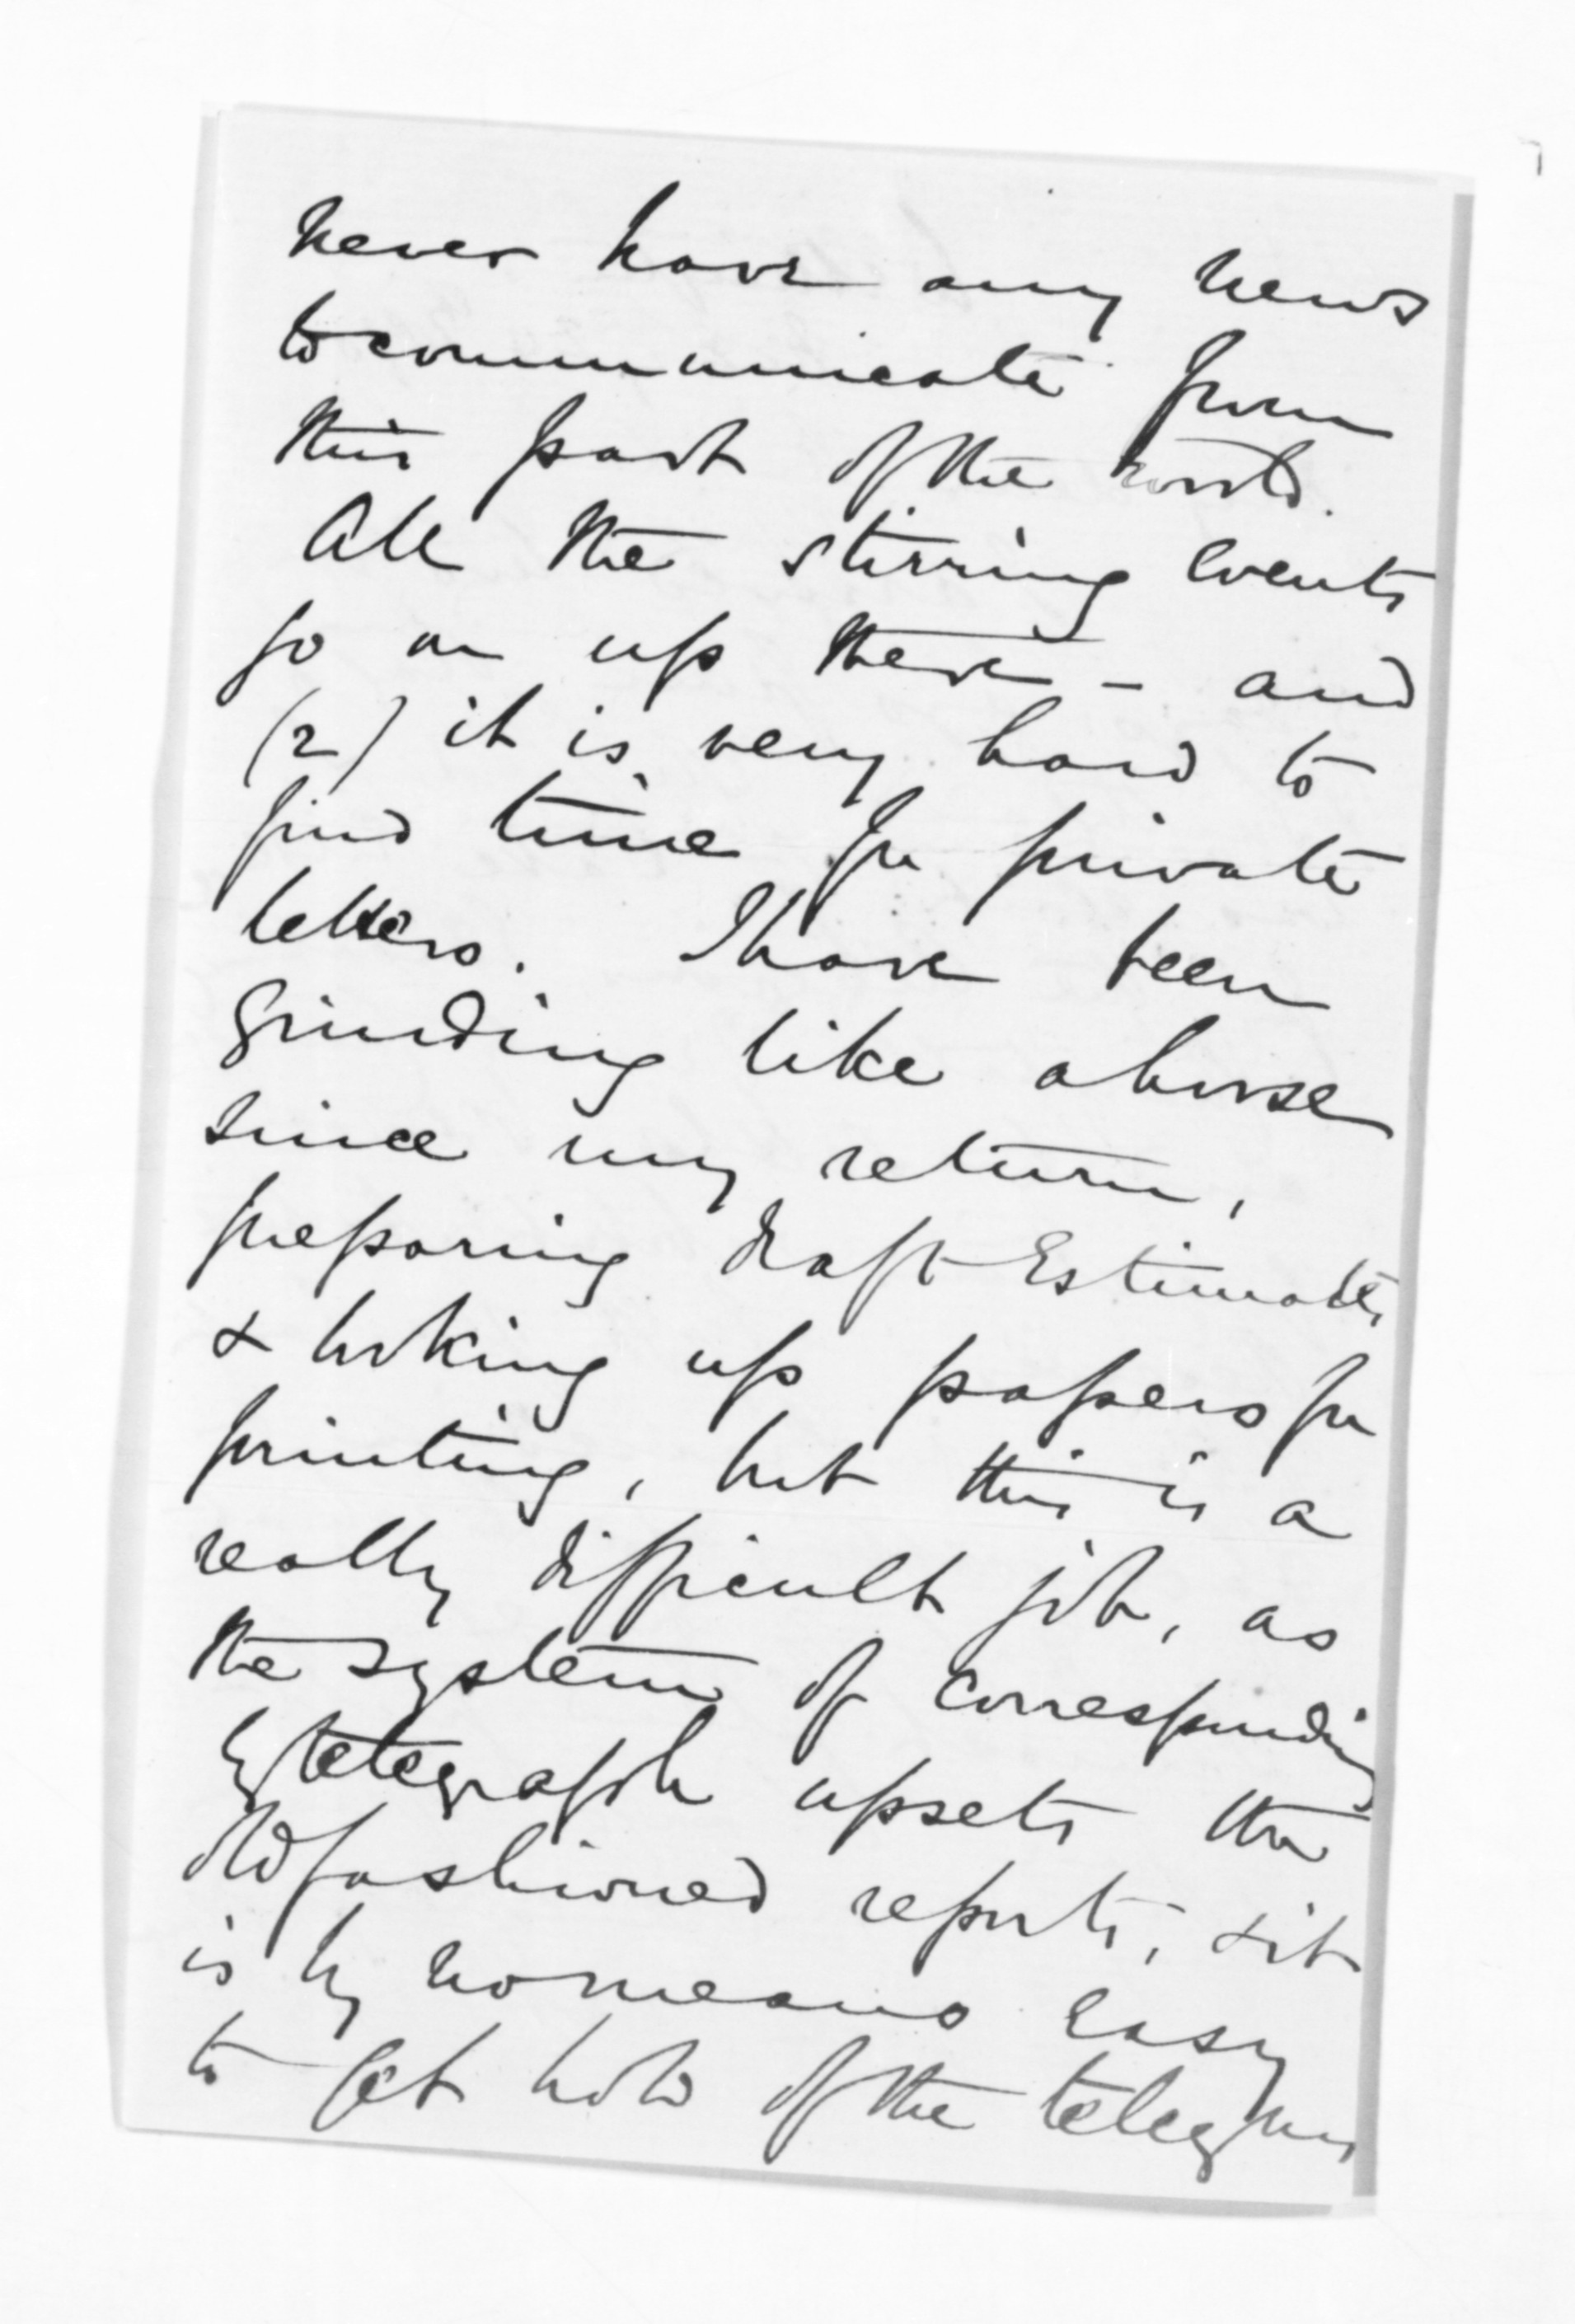 never have any news
to communicate from
this part of the world.
All the stirring events
go on up there - and
(2) it is very hard to
find time for private
letters. I have been
grinding like a horse
since my return,
preparing draft Estimates
& looking up papers for
printing, but this is a
really difficult job, as
the system of corresponding
by telegraph upsets the
old fashioned reports, & it
is by no means easy
to get hold of the telegrams